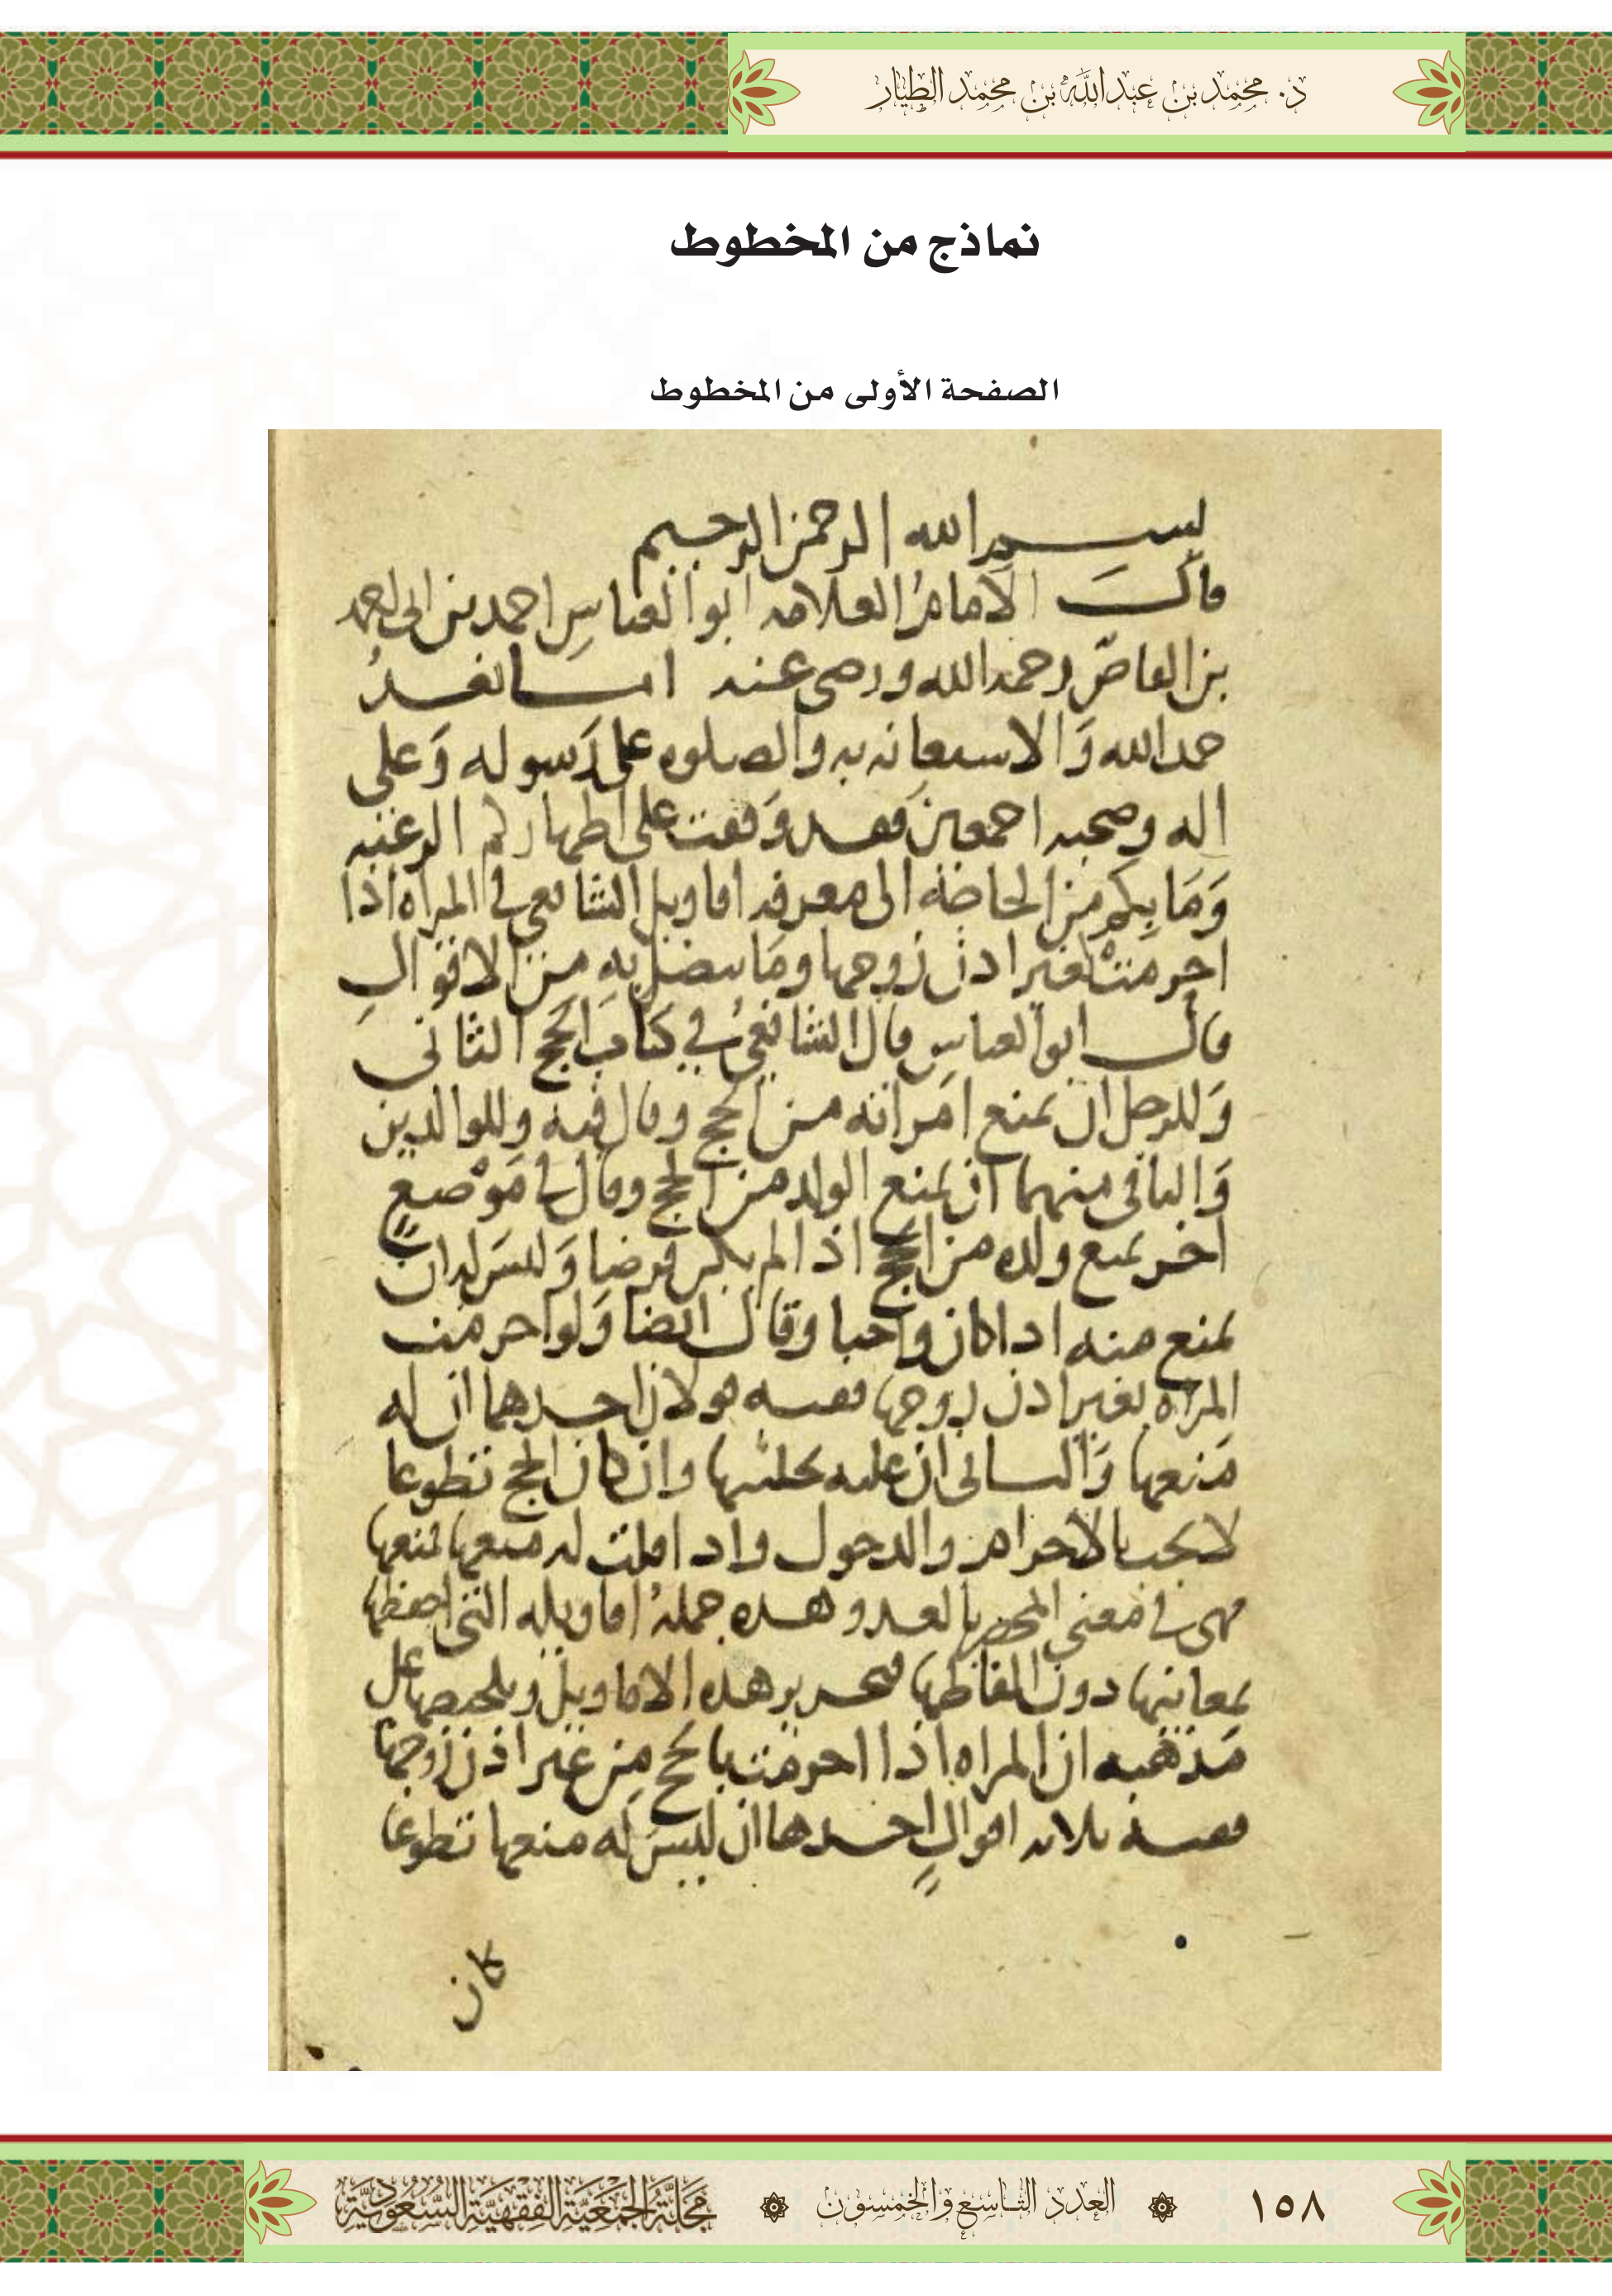 د. محمد بن عبدالله بن محمد الطيار
نماذج من المخطوط
الصفحة الأولى من المخطوط
بسم الله الرحمن الرحيم
قال الامامُ العلامه ابو العباسِ احمد بن ابى احمد
بن القاصّ رحمه الله ورضى عنه اما بعدُ
حمد الله وَالاستعانه به والصلوه على رَسوله وَعلى
اله وصحبه اجمعين فقد وَقفت على اظهاركم الرغبه
وَمَا بكم من الحاجة الى معرفه اقاويل الشافعي في المراه اذا
احرمتْ بغير اذن زوجها ومَا يتصل به من الاقوالِ
قال ابو العباسِ قال الشافعيُ في كتاب الحج الثانى
وَللرجل ان يمنع امراته من الحج وقال فيه وللوالدين
وَالباقى منهما ان يمنع الولد من الحج وقال في مَوْضعٍ
اخر يمنع ولده من الحج اذا لم يكن فرضا وَليسَ له ان
يمنع منه اذا كان واجبا وقال ايضا وَلو احرمت
المراه بغير اذن زوجها ففيه قولان احدهما ان له
مَنعها وَالثانى ان عليه تخليتها وان كان الحج تطوعا
لا يجب الا بالاحرام والدخول واذا قلت له منعها لمنعها
فهى في معنى المحصر بالعدو وهذه جملةُ اقاويله التى احفظها
بمعانيها دون الفاظها فتحرير هذه الاقاويل وتلخيصها على
مَذهبه ان المراه اذا احرمت بالحج مِن غير اذن زوجها
ففيه ثلاثه اقوالٍ احدها ان ليسَ له منعها تطوعا
كان
١٥٨
العدد التاسع والخمسون
مجلة الجمعية الفقهية السعودية